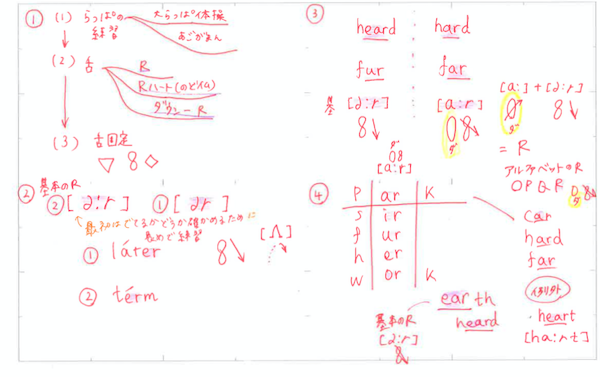 ① (1) らっぱの練習
大らっぱ体操
あごがまん
(2) 舌
R
Rハート(のどイム)
ダウンーR
(3) 舌固定
▽ 8 ◇
② 基本のR
②[ə:r] ①[ər]
最初はでてるかどうか確かめるために
長めで練習
[Λ]
① láter 8
② térm
③
heard hard
fur far
基 [ə:r] 8
[a:r] 08
ダ
[a:]+[ə:r]
0 8
ダ
= R
ダ
08
[a:r]
アルファベットのR
OPQR 08
ダ
④
P ar K
s ir
f ur
h er
w or K
car
hard
far
heart
[ha:rt]
earth
heard
基本のR
[ə:r]
8